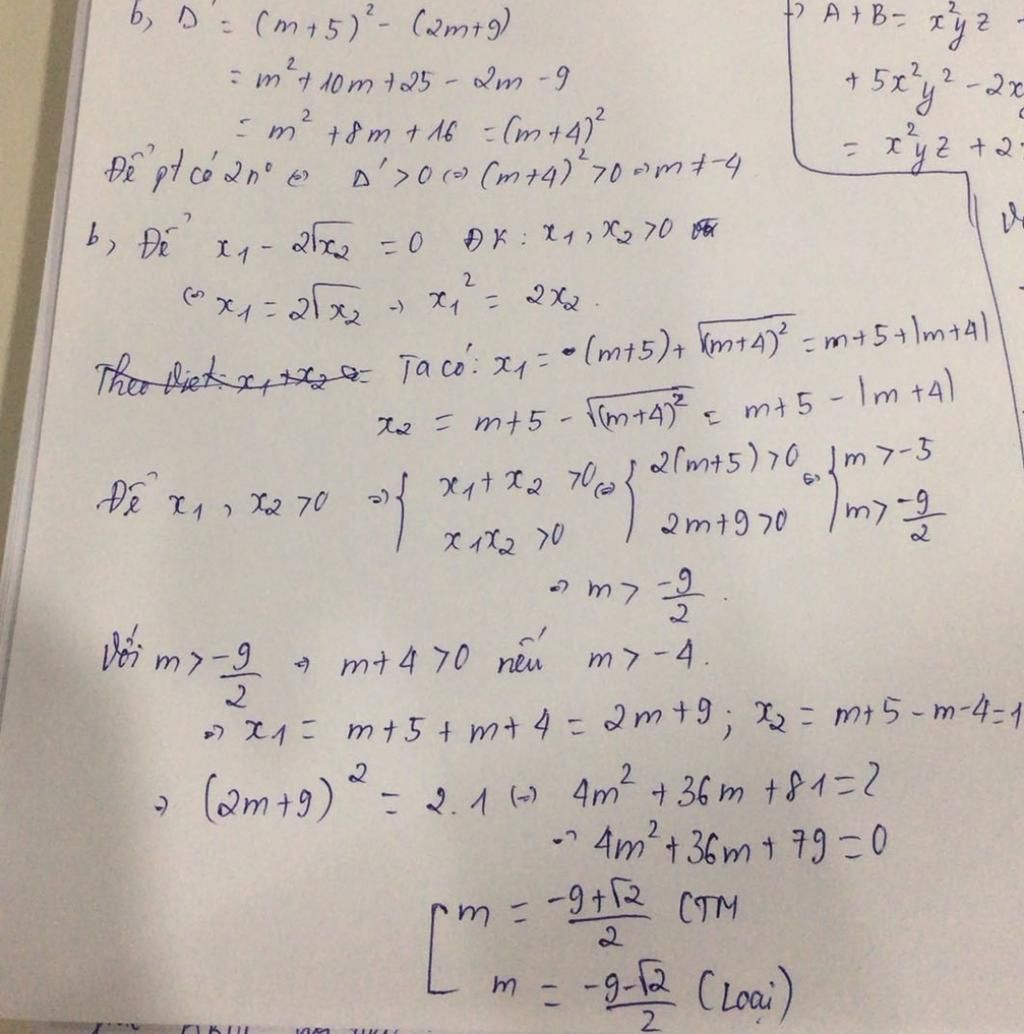 b, Δ' = (m+5)² - (2m+9)
= m² + 10m + 25 - 2m - 9
= m² + 8m + 16 = (m+4)²
Để pt có 2n° ⇔ Δ' > 0 ⇔ (m+4)² > 0 ⇒ m ≠ -4
b, Để x₁ - 2√x₂ = 0 ĐK: x₁, x₂ > 0
⇔ x₁ = 2√x₂ ⇒ x₁² = 2x₂.
Theo Viet: x₁ + x₂ = Ta có: x₁ = (m+5) + √(m+4)² = m+5+|m+4|
x₂ = m+5 - √(m+4)² = m+5 - |m+4|
Để x₁, x₂ > 0 ⇒ { x₁ + x₂ > 0 ⇔ { 2(m+5) > 0 ⇔ { m > -5
x₁x₂ > 0 2m+9 > 0 m > -9/2
⇒ m > -9/2.
Với m > -9/2 ⇒ m+4 > 0 nếu m > -4.
⇒ x₁ = m+5+m+4 = 2m+9; x₂ = m+5-m-4=1
⇒ (2m+9)² = 2.1 ⇔ 4m² + 36m + 81 = 2
⇒ 4m² + 36m + 79 = 0
[ m = (-9+√2)/2 CTM
m = (-9-√2)/2 (Loại)
⇒ A + B = x²yz
+ 5x²y² - 2x
= x²yz + 2